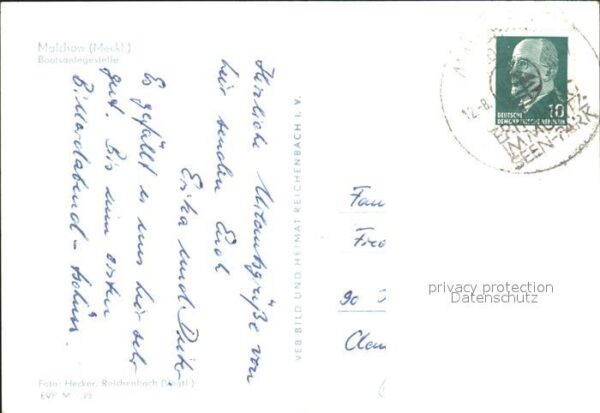 Malchow (Meckl.)
Bootsanlegestelle
Herzliche Urlaubsgrüße von
hier senden Euch
Erika und Dieter
Es gefällt es uns hier sehr
gut. Bis zum ersten
Billardabend - tschüss.
VEB BILD UND HEIMAT REICHENBACH I. V.
Foto: Hecker, Reichenbach (Vogtl.)
12.-8.
DEUTSCHE
DEMOKRATISCHE REPUBLIK
10
SEEN-PARK
Fam
Fre
90
privacy protection
Datenschutz